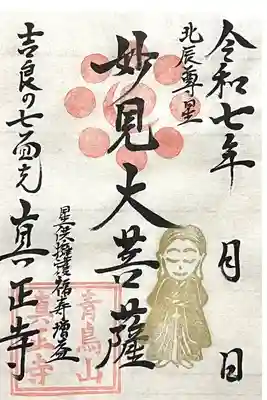 令和七年 月 日
北辰尊星
妙見大菩薩
星供擁護福寿増益
吉良の七面
真正寺
青鳥山
真正寺